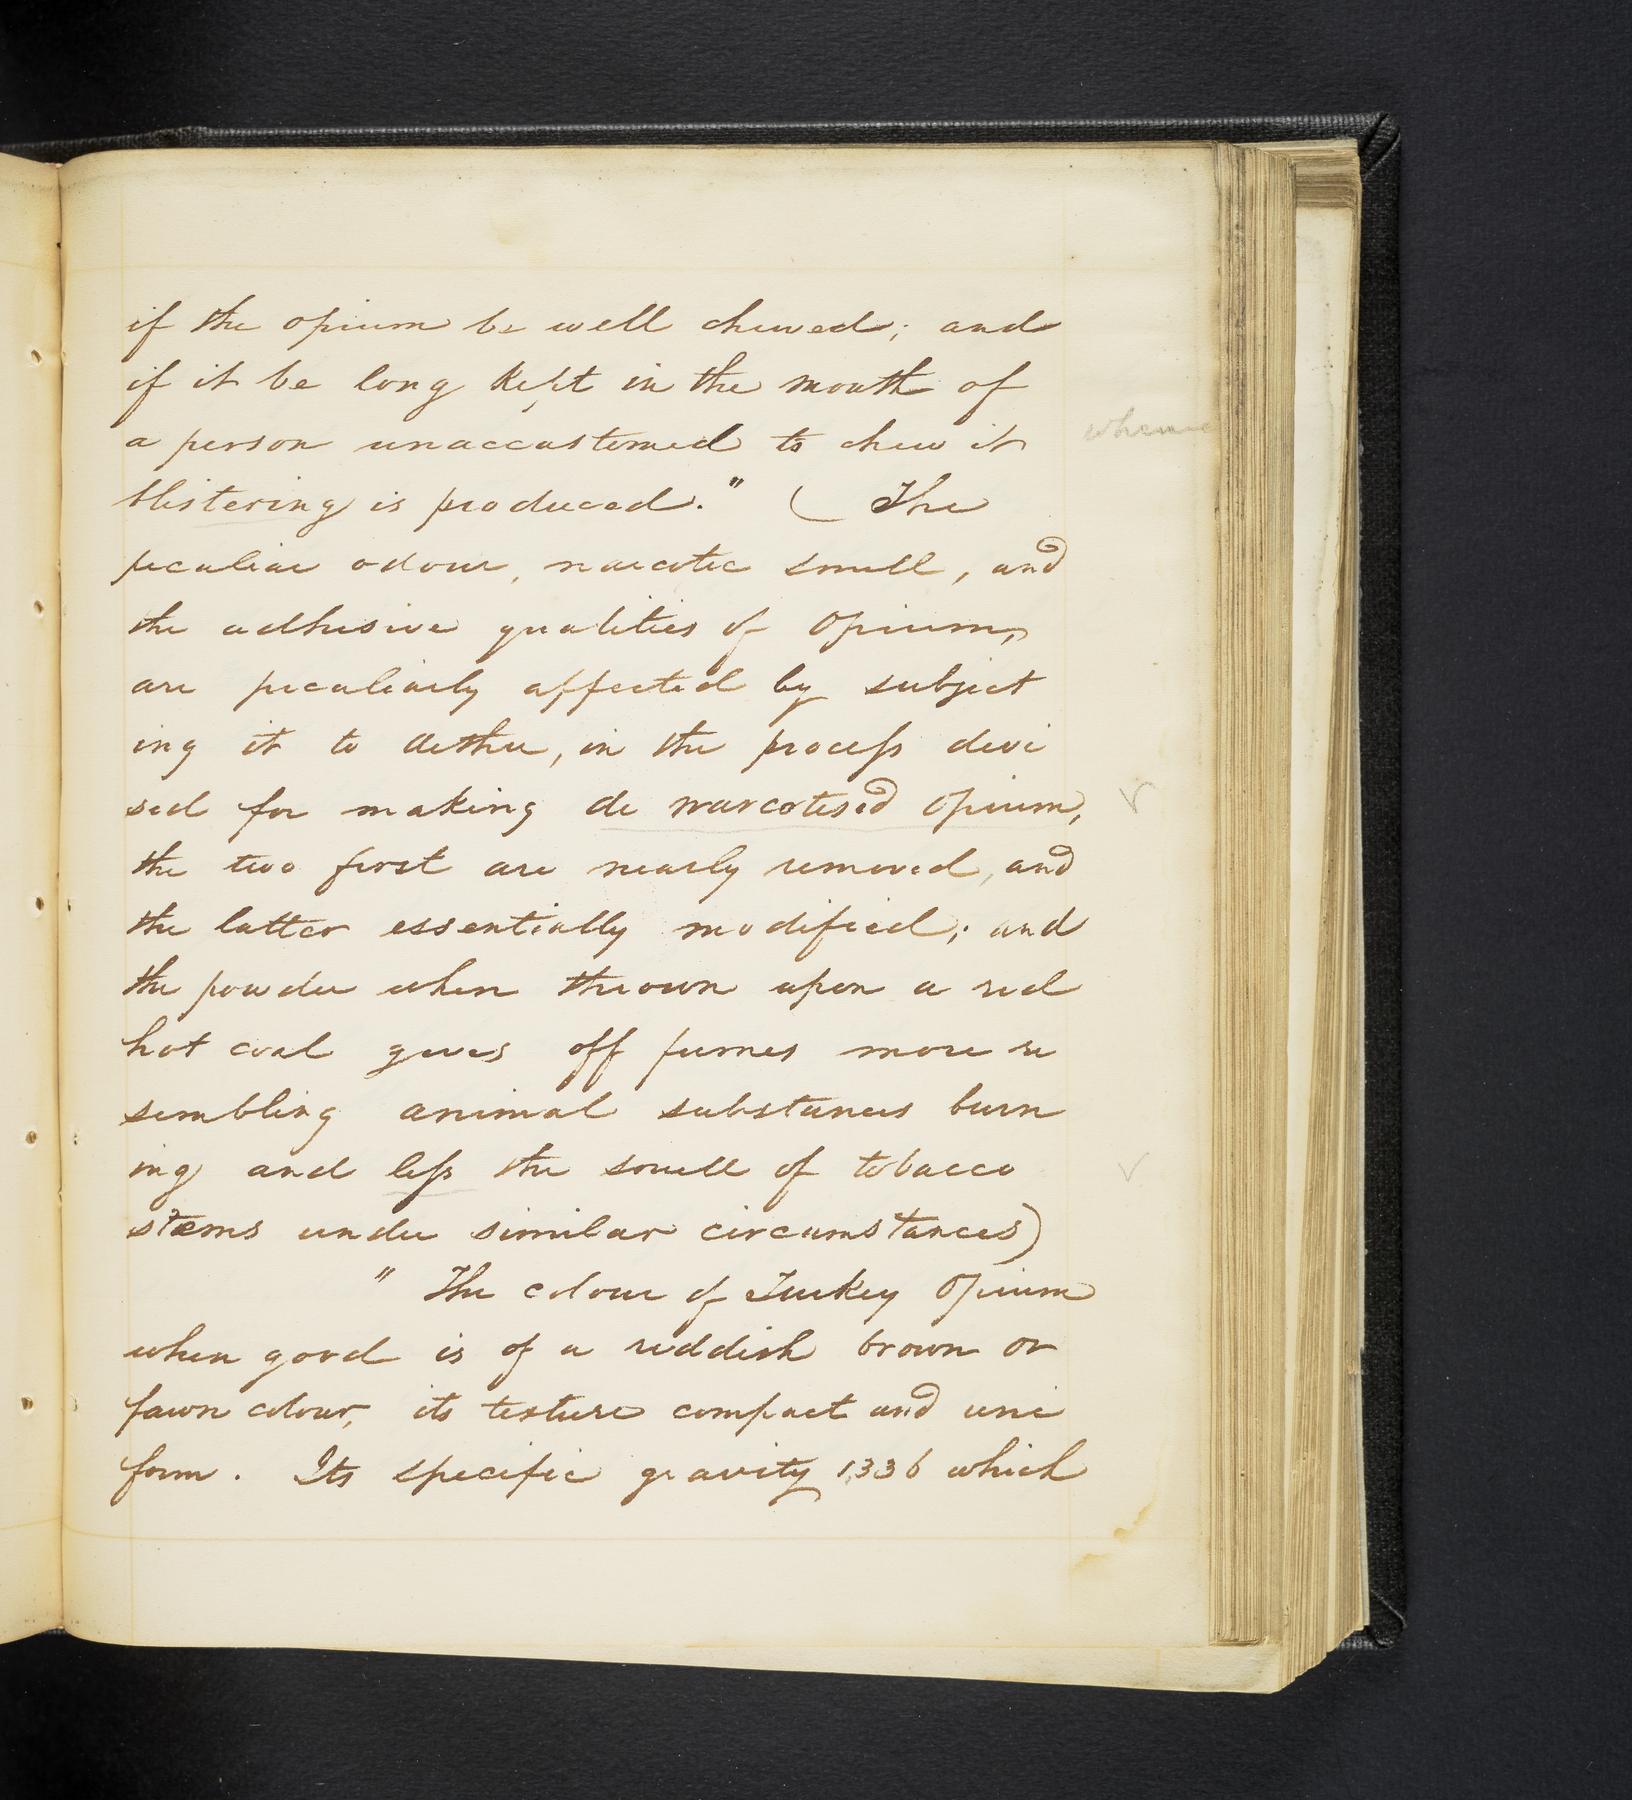 if the opium be well chewed; and
if it be long kept in the mouth of
a person unaccustomed to chew it
blistering is produced." ( The
peculiar odour, narcotic smell, and
the adhesive qualities of Opium,
are peculiarly affected by subject
ing it to Aether, in the process devi
sed for making de narcotised Opium,
the two first are nearly removed, and
the latter essentially modified; and
the powder when thrown upon a red
hot coal gives off fumes more re
sembling animal substances burn
ing and less the smell of tobacco
stems under similar circumstances)
" The colour of Turkey Opium
when good is of a reddish brown or
fawn colour, its texture compact and uni
form. Its specific gravity 1,336 which